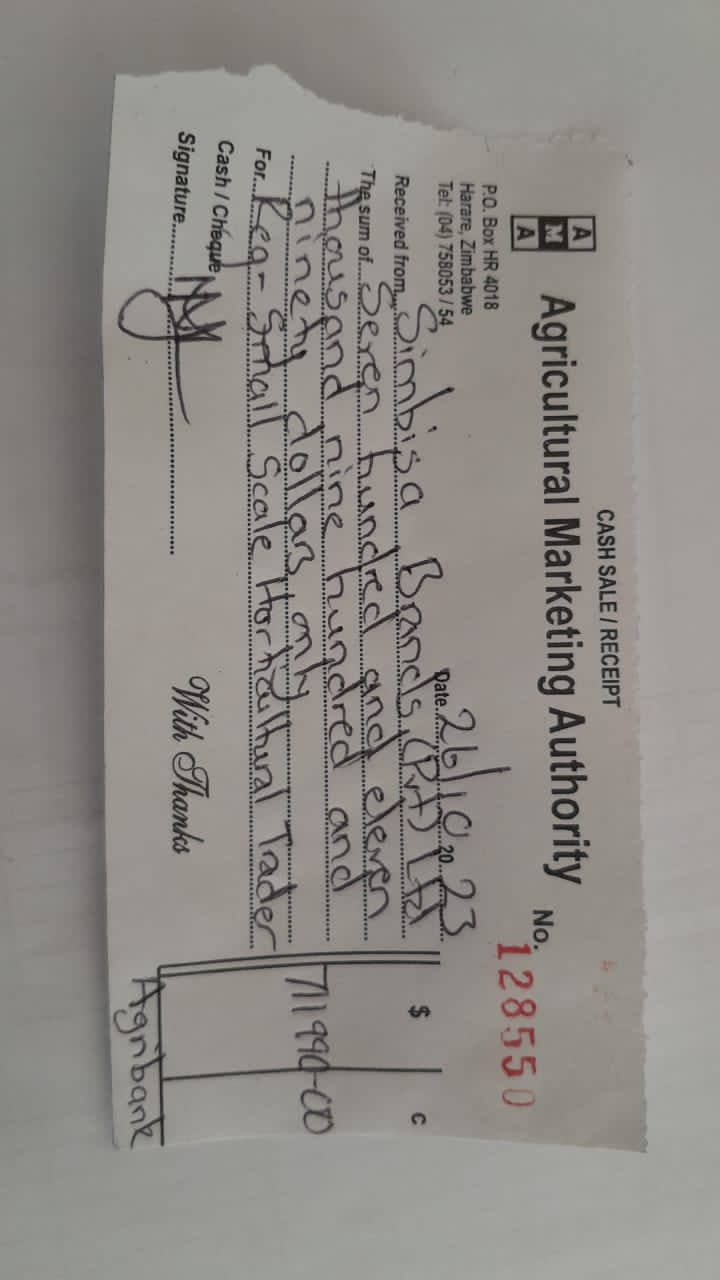 CASH SALE / RECEIPT
A
M
A
Agricultural Marketing Authority
No. 128550
P.O. Box HR 4018
Harare, Zimbabwe
Tel: (04) 758053 / 54
Date 26/10 20 23
Received from Simbisa Brands (Pvt) Ltd
The sum of Seven hundred and eleven
thousand nine hundred and
ninety dollars only
For Reg - Small Scale Horticultural Trader
$ c
711 990-00
Cash / Cheque
Signature
With Thanks
Agribank